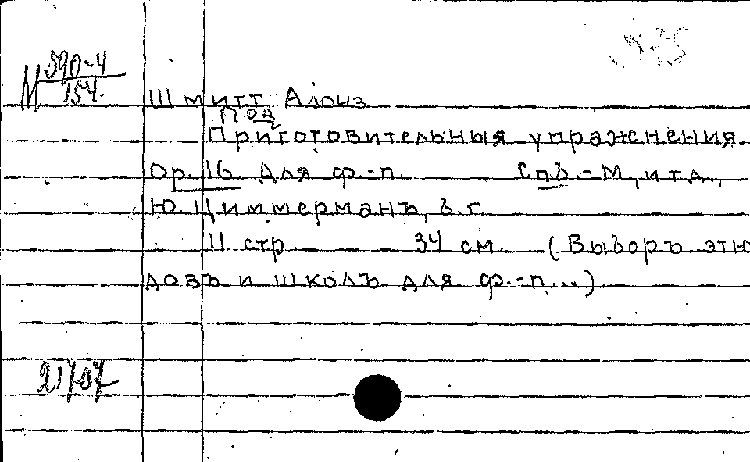 М 590-4
154
Шмитт Алоиз
Под
Приготовительныя упражнения
Op. 16 для ф.-п. Спб.-М, итд,
Ю. Циммерманъ, б.г.
11 стр 34 см (Выборъ этю
довъ и школъ для ф.-п...)